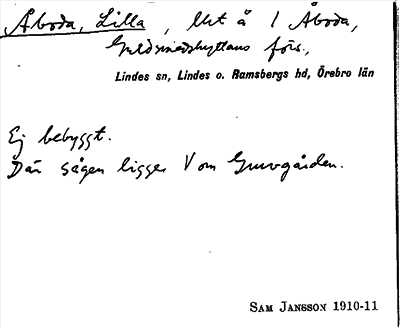 Åboda, Lilla, litt å 1 Åboda,
Guldsmedshyttans förs.,
Lindes sn, Lindes o. Ramsbergs hd, Örebro län
Ej bebyggt.
Där sågen ligger V om Gruvgården.
SAM JANSSON 1910-11